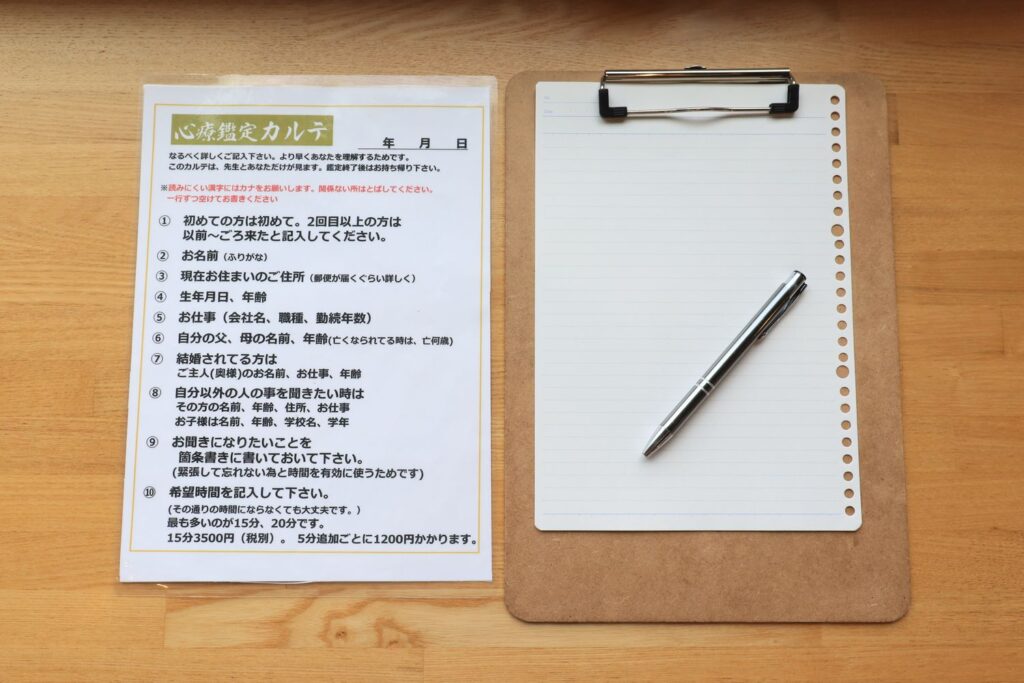 心療鑑定カルテ
年 月 日
なるべく詳しくご記入下さい。より早くあなたを理解するためです。
このカルテは、先生とあなただけが見ます。鑑定終了後はお持ち帰り下さい。
※読みにくい漢字にはカナをお願いします。関係ない所はとばしてください。
一行ずつ空けてお書きください
① 初めての方は初めて。2回目以上の方は
以前～ごろ来たと記入してください。
② お名前（ふりがな）
③ 現在お住まいのご住所（郵便が届くぐらい詳しく）
④ 生年月日、年齢
⑤ お仕事（会社名、職種、勤続年数）
⑥ 自分の父、母の名前、年齢(亡くなられてる時は、亡何歳)
⑦ 結婚されてる方は
ご主人(奥様)のお名前、お仕事、年齢
⑧ 自分以外の人の事を聞きたい時は
その方の名前、年齢、住所、お仕事
お子様は名前、年齢、学校名、学年
⑨ お聞きになりたいことを
箇条書きに書いておいて下さい。
(緊張して忘れない為と時間を有効に使うためです)
⑩ 希望時間を記入して下さい。
(その通りの時間にならなくても大丈夫です。)
最も多いのが15分、20分です。
15分3500円（税別）。 5分追加ごとに1200円かかります。